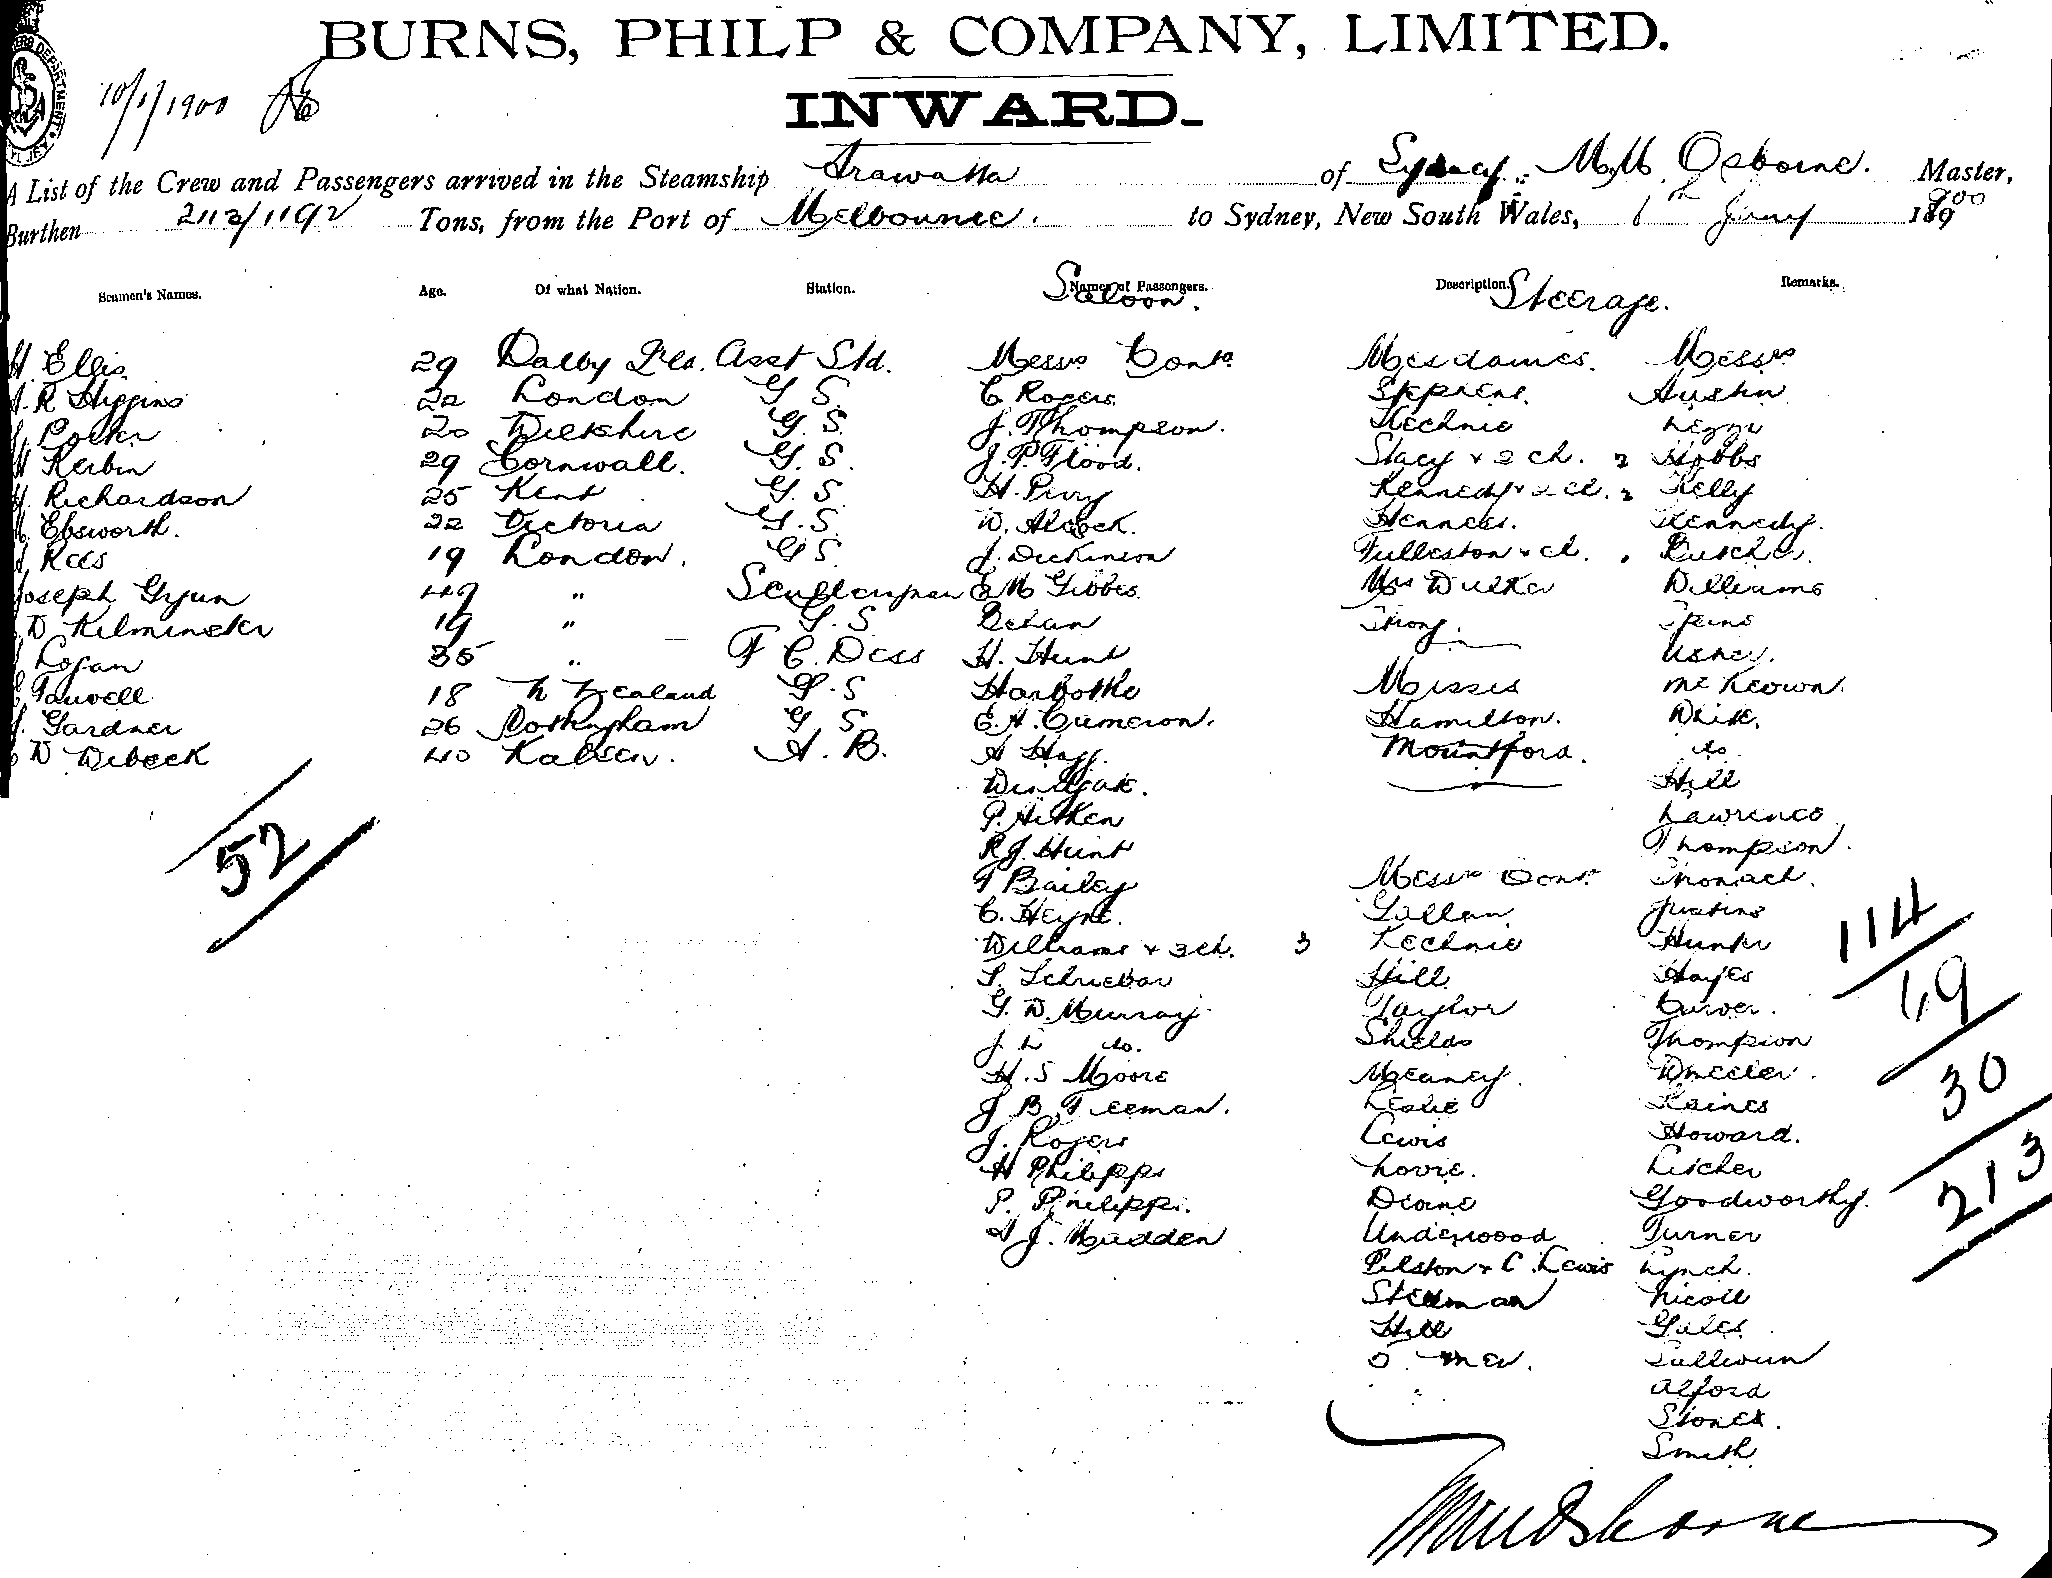 BURNS, PHILP & COMPANY, LIMITED.
INWARD.
10/1/1900
A List of the Crew and Passengers arrived in the Steamship Arawatta of Sydney. M,M. Osborne. Master,
Burthen 2113/1192 Tons, from the Port of Melbourne. to Sydney, New South Wales, 6th Jany 1900
Seamen's Names. Age. Of what Nation. Station. Names of Passengers. Description. Remarks.
Saloon. Steerage.
H. Ellis 29 Dalby Qld. Asst Std. Messrs Contd. Mesdames. Messrs
R Higgins 22 London G S. C Rogers. Stephens. Austin
20 Wilkshire G. S. J. Thompson. Kechnie
Kerbin 29 Cornwall. G. S. J. P. Flood. Stacy + 2 ch. 2 Hobbs
H. Richardson 25 Kent G. S. H. Perry Kennedy + 2 cl. 2 Kelly
Ebsworth. 22 Victoria G. S. W. Alcock. Kennedy.
Rees 19 London. G S. J. Dickinson Fulleston + cl. Butcher.
Joseph Gyun 49 " Sculleryman E M Gibbes. Mrs Williams
W Kilminster 19 " G. S Behan Strong.
Logan 35 " F C. Dess H. Hunt Usher.
Tauwell 18 N Zealand G. S Harbottle Misses McKeown.
J. Gardner 26 Nottingham G S. E. A. Cameron. Hamilton. White.
W Debeck 40 A. B. A Hagg. Mountford. do
Hill
P. Aitken Lawrence
R J. Hunt Thompson.
T Bailey Messrs Contd.
C. Heyne. Justins
Williams + 3 ch. 3 Kechnie Hunter
S. Schriebar Hill Hayes
G. W. Murray Taylor Carver.
J. L do. Shields Thompson
H. S Moore Meaney. Wheeler.
J B Freeman. Leslie Raines
J. Rogers Lewis Howard.
H Philipps Lovie. Fischer
P. Philippi. Goodworthy.
J. Madden Underwood Turner
Pelston + C. Lewis Lynch.
Stedman Nicoll
Hill Gales
Sullivan
Alford
Stonex.
Smith
52
114
49
30
213
MM Osborne